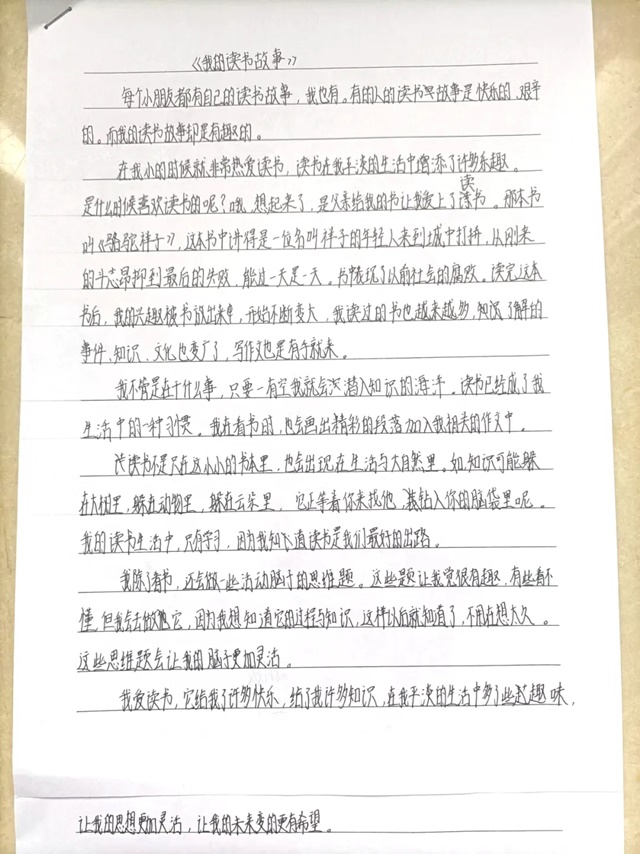 《我的读书故事》
每个小朋友都有自己的读书故事，我也有。有的人的读书故事是快乐的、艰辛
的。而我的读书故事却是有趣的。
在我小的时候就非常热爱读书，读书在我平淡的生活中增添了许多乐趣。
读
是什么时候喜欢读书的呢？哦，想起来了，是父亲给我的书让我爱上了书。那本书
叫《骆驼祥子》，这本书中讲得是一位名叫祥子的年轻人来到城中打拼，从刚来
的斗志昂抑到最后的失败，能过一天是一天。书中表现了以前社会的腐败。读完这本
书后，我的兴趣被书放出来，开始不断变大，我读过的书也越来越多，知道了解的
事件、知识、文化也变广了，写作文也是有手就来。
我不管是在干什么事，只要一有空我就会深潜入知识的海洋。读书已经成了我
生活中的一种习惯。我在看书时，也会画出精彩的段落加入我相关的作文中。
读书不是只在这小小的书本里，也会出现在生活与大自然里。如知识可能躲
在大树里，躲在动物里，躲在云朵里，它正等着你来找他，钻入你的脑袋里呢。
我的读书生活中，只有学习，因为我知道读书是我们最好的出路。
我除了看书，还会做一些活动脑子的思维题。这些题让我觉很有趣，有些看不
懂，但我会去做它，因为我想知道它的过程与知识，这样以后就知道了，不用在想太久。
这些思维题会让我的脑子更加灵活。
我爱读书，它给我了许多快乐，给了我许多知识，在我平淡的生活中多了些趣味，
让我的思想更加灵活，让我的未来变的更有希望。